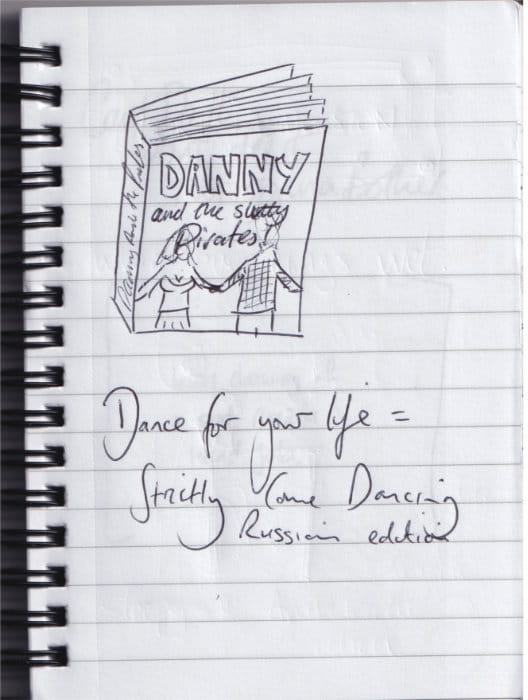 Danny and the Pirates
DANNY
and the slutty
Pirates!
Dance for your life =
Strictly Come Dancing
Russian edition